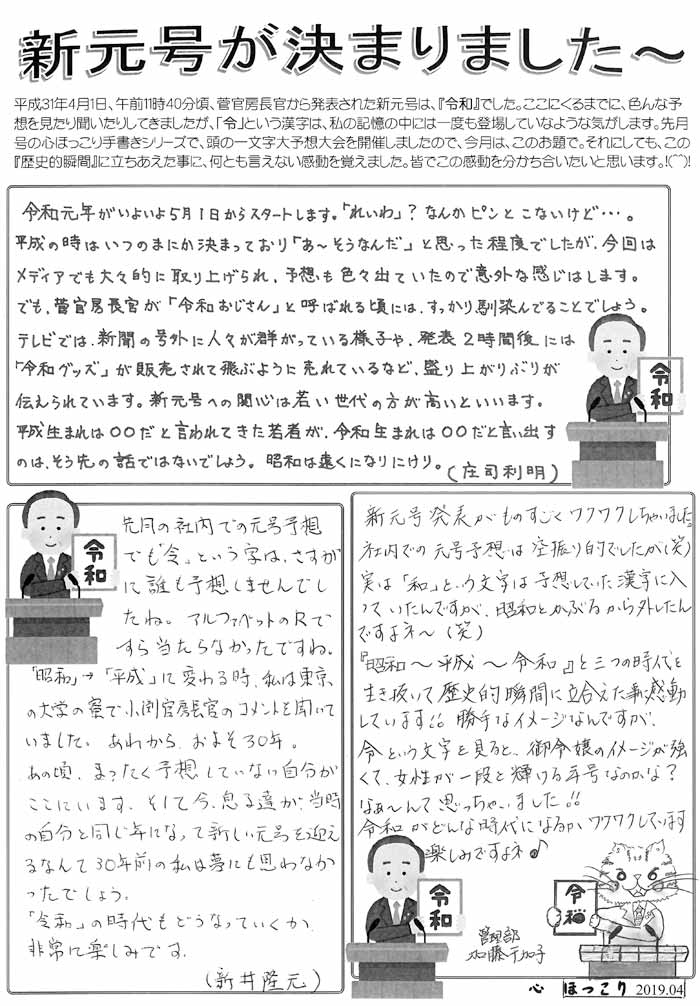 新元号が決まりました～
平成31年4月1日、午前11時40分頃、菅官房長官から発表された新元号は、『令和』でした。ここにくるまでに、色んな予
想を見たり聞いたりしてきましたが、「令」という漢字は、私の記憶の中には一度も登場していなような気がします。先月
号の心ほっこり手書きシリーズで、頭の一文字大予想大会を開催しましたので、今月は、このお題で。それにしても、この
『歴史的瞬間』に立ちあえた事に、何とも言えない感動を覚えました。皆でこの感動を分かち合いたいと思います。!(^^)!
令和元年がいよいよ5月1日からスタートします。「れいわ」？なんかピンとこないけど…。
平成の時はいつのまにか決まっており「あ～そうなんだ」と思った程度でしたが、今回は
メディアでも大々的に取り上げられ、予想も色々出ていたので意外な感じはします。
でも、菅官房長官が「令和おじさん」と呼ばれる頃には、すっかり馴染んでることでしょう。
テレビでは、新聞の号外に人々が群がっている様子や、発表2時間後には
「令和グッズ」が販売されて飛ぶように売れているなど、盛り上がりぶりが
伝えられています。新元号への関心は若い世代の方が高いといいます。
平成生まれは〇〇だと言われてきた若者が、令和生まれは〇〇だと言い出す
のは、そう先の話ではないでしょう。昭和は遠くになりにけり。(庄司利明)
令和
令和
先月の社内での元号予想
でも「令」という字は、さすが
に誰も予想しませんでし
たね。アルファベットのRで
すら当たらなかったですね。
「昭和」→「平成」に変わる時、私は東京
の大学の寮で小渕官房長官のコメントを聞いて
いました。あれから、およそ30年。
あの頃、まったく予想していない自分が
ここにいます。そして今、息子達が、当時
の自分と同じ年になって新しい元号を迎え
るなんて30年前の私は夢にも思わなか
ったでしょう。
「令和」の時代もどうなっていくか、
非常に楽しみです。
(新井隆元)
新元号発表がものすごくワクワクしちゃいました。
社内での元号予想は空振り的でしたが(笑)
実は「和」という文字は予想していた漢字に入
っていたんですが、昭和とかぶるから外したん
ですよネ～(笑)
『昭和～平成～令和』と三つの時代を
生き抜いて歴史的瞬間に立合えた事、感動
しています!! 勝手なイメージなんですが、
令という文字を見ると、御令嬢のイメージが強
くて、女性が一段と輝ける年号なのかな？
なぁ～んて思っちゃいました!!
令和がどんな時代になるか、ワクワクしています
楽しみですよネ♪
令和
令猫
管理部
加藤
心 ほっこり 2019.04